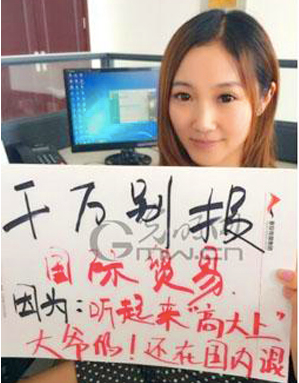 千万别报
光明网
GMW.cn
国际贸易.
因为:听起来“高大上”
大爷的!还在国内混